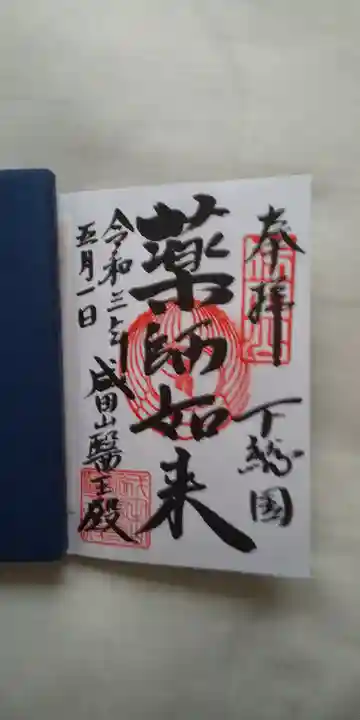 奉拝
下総国
薬師如来
成田山醫王殿
令和三年
五月一日